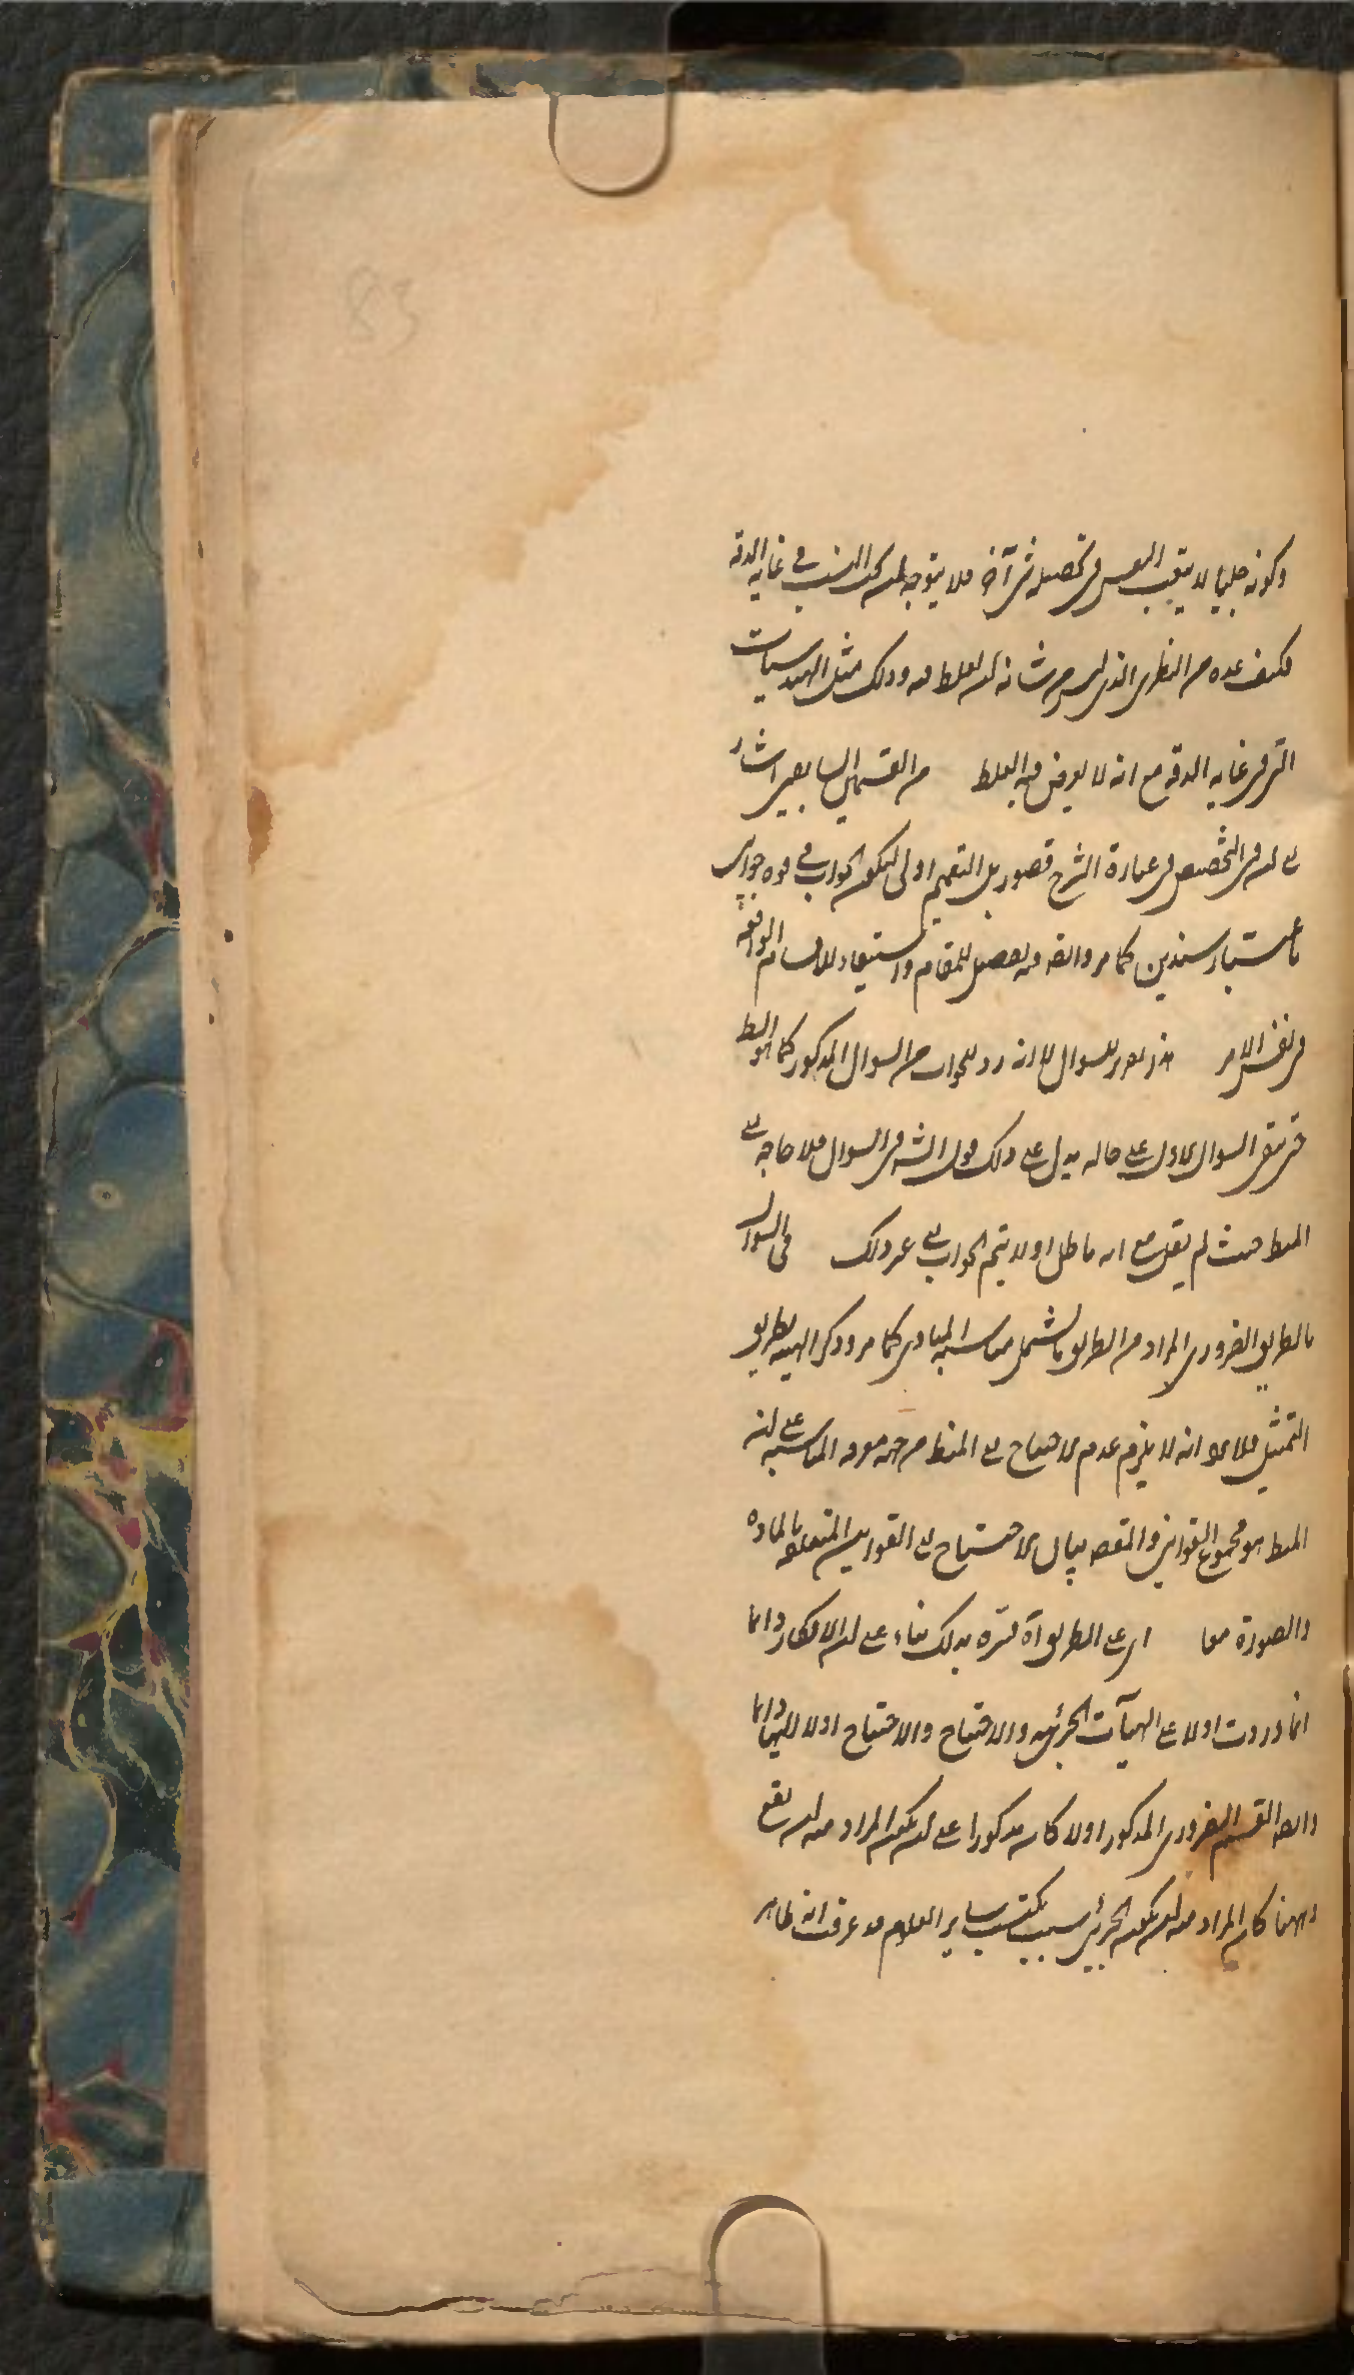 83
وكونه جليا لا يتعب النفس في تحصيل شئ آخر فلا يتوجه ان كتب المنسب في غاية الدقة
فكيف عده من النظري الذي ليس من شانه ان يغلط فيه وذلك مثل الهندسيات
التي في غاية الدقة مع انه لا يعرض فيه الغلط من القسمين السابقين اشار
الى ان في التخصيص في عبارة الشرح قصور بل التعميم اولى ليكون الجواب في قوة جوابين
باعتبار سندين كما مر وايضا فيه تفصيل للمقام واستيعاب للاقسام الواقعة
في نفس الامر هذا تقرير للسوال لا انه رد للجواب من السوال المذكور كما هو الظ
حتى يبقى السوال الاول على حاله يدل على ذلك قول الش في السوال فلا حاجة الى
المنط حيث لم يقل مع انه باطل او لا يتم الجواب الى غير ذلك في السوال
بالطريق الضروري المراد من الطريق ما يشمل مناسبة المبادي كما مر وذكر الهيئة بطريق
التمثيل فلا يرد انه لا يلزم عدم الاحتياج الى المنط من جهة معرفة المناسبة على ان
المنط هو مجموع القوانين والمقصد بيان الاحتياج الى القوانين المتعلقة بالمادة
والصورة معا اي على الطريق آه فسره بذلك بناء على ان الافكار دائما
انما وردت اولا على الهيآت الجزئية والاحتياج والاحتياج اولا اليها دائما
وايضا القسم الضروري المذكور اولا كان مذكورا على ان يكون المراد منه ان يقع
وههنا كان المراد منه ان يكون الجزئي سبب يكتسب ساير العلوم قد عرفت انه ظاهر